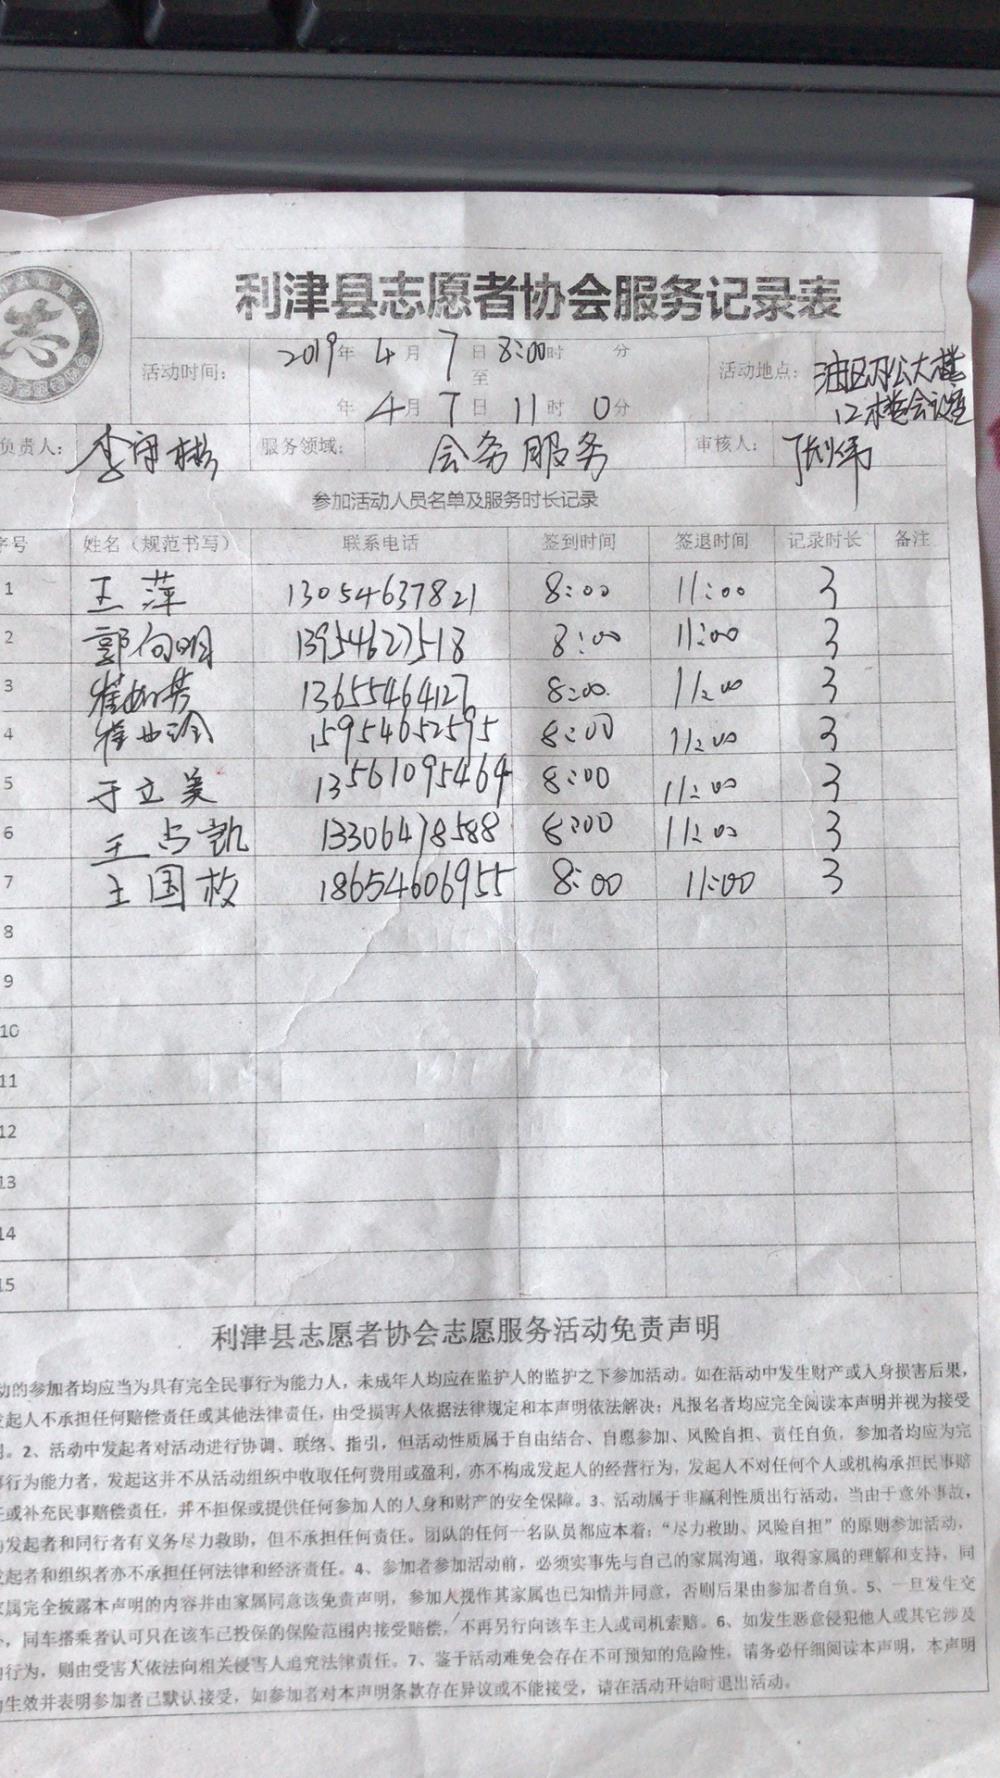 志
利津县志愿者协会服务记录表
活动时间： 2019年 4月 7日 8:00时 分
至
年 4月 7日 11时 0分
活动地点： 油区办公大楼
12楼会议室
负责人： 李 彬 服务领域： 会务服务 审核人：
参加活动人员名单及服务时长记录
序号 姓名（规范书写） 联系电话 签到时间 签退时间 记录时长 备注
1 王萍 13054637821 8:00 11:00 3
2 郭向明 13954627518 8:00 11:00 3
3 崔 芳 13655464127 8:00 11:00 3
4 崔 15954652595 8:00 11:00 3
5 于立美 13561095464 8:00 11:00 3
6 王占凯 13306478588 8:00 11:00 3
7 王国枚 18654606955 8:00 11:00 3
8
9
10
11
12
13
14
15
利津县志愿者协会志愿服务活动免责声明
动的参加者均应当为具有完全民事行为能力人，未成年人均应在监护人的监护之下参加活动。如在活动中发生财产或人身损害后果，
发起人不承担任何赔偿责任或其他法律责任，由受损害人依据法律规定和本声明依法解决；凡报名者均应完全阅读本声明并视为接受
。2、活动中发起者对活动进行协调、联络、指引，但活动性质属于自由结合、自愿参加、风险自担、责任自负，参加者均应为完
事行为能力者，发起这并不从活动组织中收取任何费用或盈利，亦不构成发起人的经营行为，发起人不对任何个人或机构承担民事赔
任或补充民事赔偿责任，并不担保或提供任何参加人的人身和财产的安全保障。3、活动属于非赢利性质出行活动，当由于意外事故，
发起者和同行者有义务尽力救助，但不承担任何责任。团队的任何一名队员都应本着：“尽力救助、风险自担”的原则参加活动，
发起者和组织者亦不承担任何法律和经济责任。4、参加者参加活动前，必须实事先与自己的家属沟通，取得家属的理解和支持，同
家属完全披露本声明的内容并由家属同意该免责声明，参加人视作其家属也已知情并同意，否则后果由参加者自负。5、一旦发生交
，同车搭乘者认可只在该车已投保的保险范围内接受赔偿，不再另行向该车主人或司机索赔。6、如发生恶意侵犯他人或其它涉及
的行为，则由受害人依法向相关侵害人追究法律责任。7、鉴于活动难免会存在不可预知的危险性，请务必仔细阅读本声明，本声明
生效并表明参加者已默认接受，如参加者对本声明条款存在异议或不能接受，请在活动开始时退出活动。